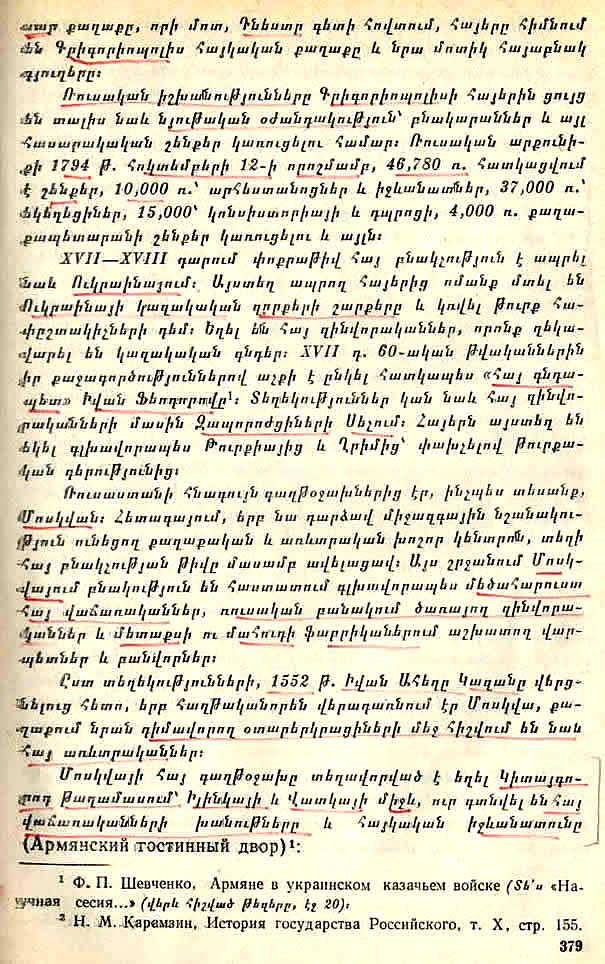 քաղաքը, որի մոտ, Դնեստր գետի հովտում, հայերը հիմնում
են Գրիգորիոպոլիս հայկական քաղաքը և նրա մոտիկ հայաբնակ
գյուղերը։
Ռուսական իշխանությունները Գրիգորիոպոլիսի հայերին ցույց
են տալիս նաև նյութական օժանդակություն՝ բնակարաններ և այլ
հասարակական շենքեր կառուցելու համար։ Ռուսական արքունի-
քի 1794 թ. հոկտեմբերի 12-ի որոշմամբ, 46,780 ռ. հատկացվում
է շենքեր, 10,000 ռ.՝ արհեստանոցներ և իջևանատներ, 37,000 ռ.՝
եկեղեցիներ, 15,000՝ կոնսիստորիայի և դպրոցի, 4,000 ռ. քաղա-
քապետարանի շենքեր կառուցելու և այլն։
XVII—XVIII դարում փոքրաթիվ հայ բնակչություն է ապրել
նաև Ուկրաինայում։ Այստեղ ապրող հայերից ոմանք մտել են
Ուկրաինայի կազակական զորքերի շարքերը և կռվել թուրք հա-
փըշտակիչների դեմ։ Եղել են հայ զինվորականներ, որոնք ղեկա-
վարել են կազակական գնդեր։ XVII դ. 60-ական թվականներին
իր քաջագործություններով աչքի է ընկել հատկապես «հայ գնդա-
պետ» Իվան Ֆեոդորովը¹։ Տեղեկություններ կան նաև հայ զինվո-
րականների մասին Զապորոժցիների Սեչում։ Հայերն այստեղ են
եկել գլխավորապես Թուրքիայից և Ղրիմից՝ փախչելով թուրքա-
կան գերությունից։
Ռուսաստանի հնագույն գաղթօջախներից էր, ինչպես տեսանք,
Մոսկվան։ Հետագայում, երբ նա դարձավ միջազգային նշանակու-
թյուն ունեցող քաղաքական և առևտրական խոշոր կենտրոն, տեղի
հայ բնակչության թիվը մասամբ ավելացավ։ Այս շրջանում Մոսկ-
վայում բնակություն են հաստատում գլխավորապես մեծահարուստ
հայ վաճառականներ, ռուսական բանակում ծառայող զինվորա-
կաններ և մետաքսի ու մահուդի ֆաբրիկաներում աշխատող վար-
պետներ և բանվորներ։
Ըստ տեղեկությունների, 1552 թ. Իվան Ահեղը Կազանը վերց-
նելուց հետո, երբ հաղթականորեն վերադառնում էր Մոսկվա, քա-
ղաքում նրան դիմավորող օտարերկրացիների մեջ հիշվում են նաև
հայ առևտրականներ։
Մոսկվայի հայ գաղթօջախը տեղավորված է եղել Կիտայգո-
րոդ թաղամասում՝ Իլինկայի և Վառկայի միջև, ուր գտնվել են հայ
վաճառականների խանութները և հայկական իջևանատունը
(Армянский гостинный двор)¹։
¹ Ф. П. Шевченко, Армяне в украинском казачьем войске (Տե՛ս «На-
учная сессия...» (վերև հիշված թեզերը, էջ 20)։
² Н. М. Карамзин, История государства Российского, т. X, стр. 155.
379